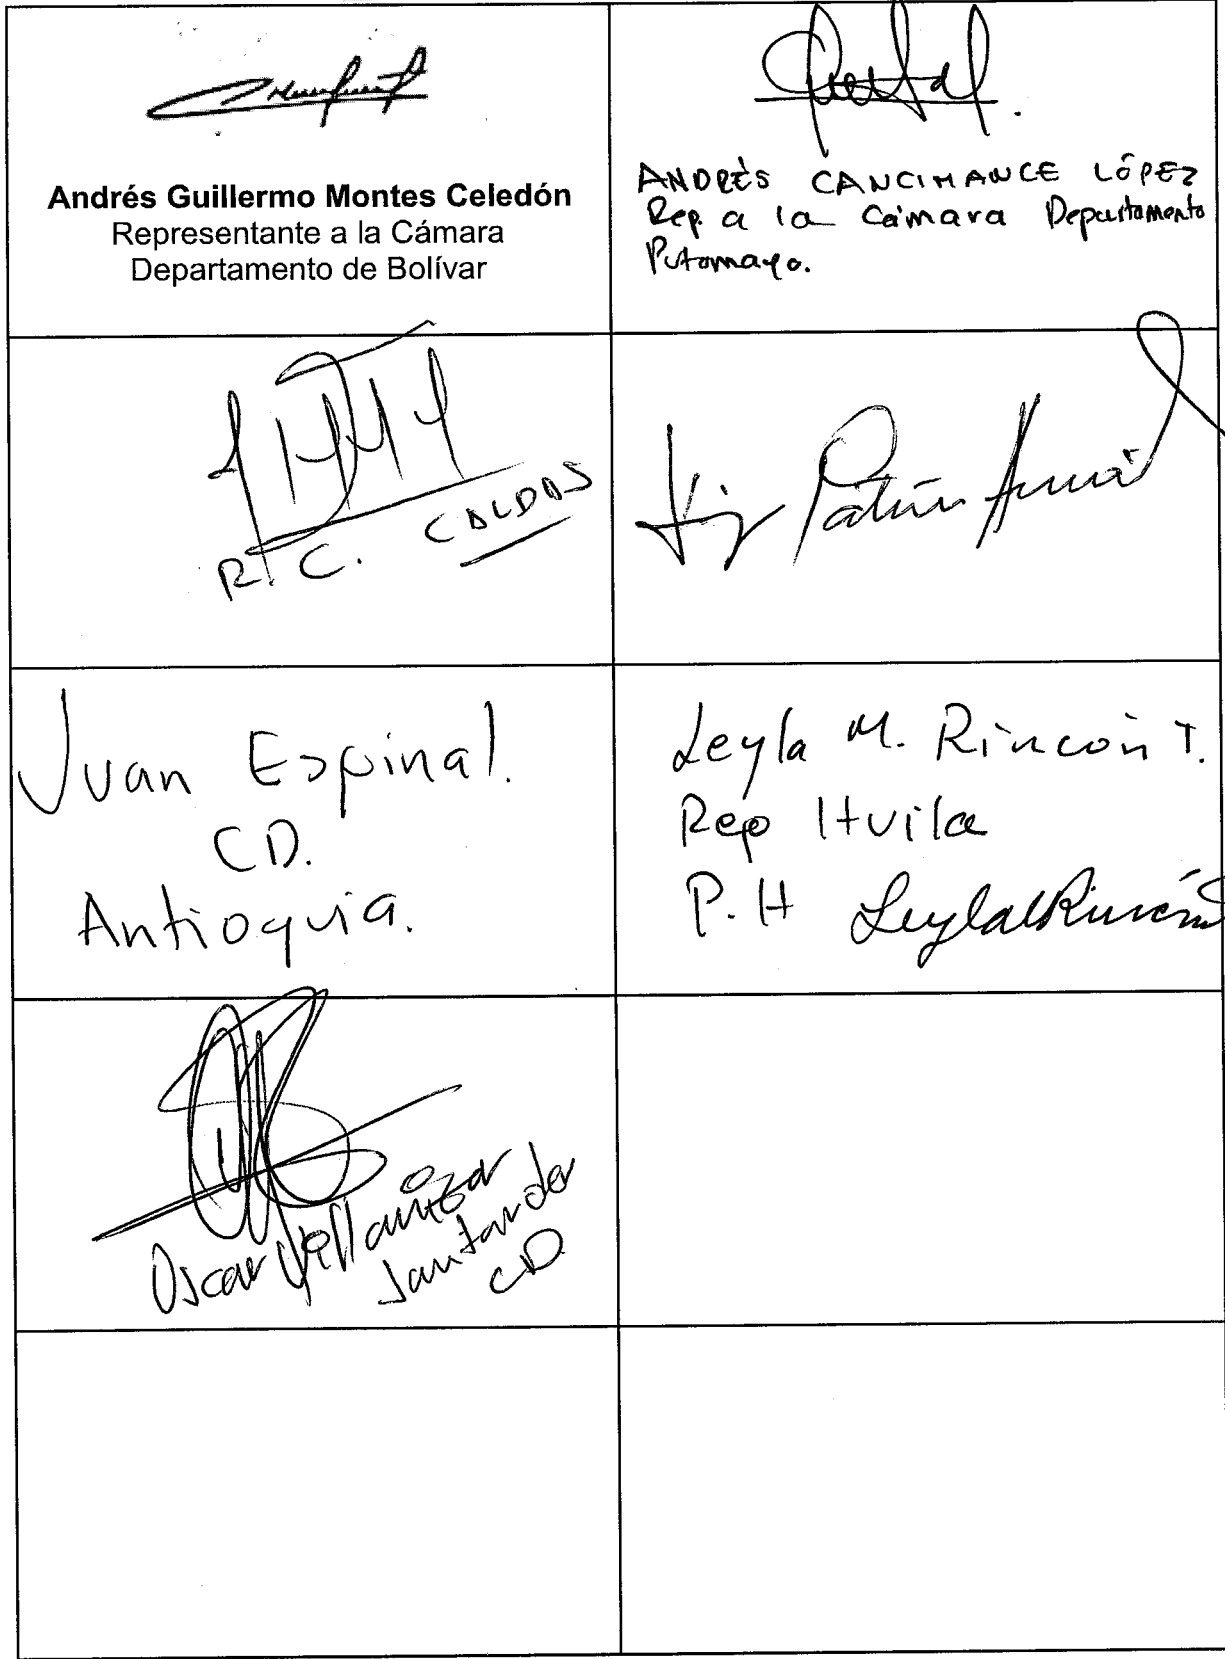 Andrés Guillermo Montes Celedón
Representante a la Cámara
Departamento de Bolívar
ANDRÉS CANCIMANCE LÓPEZ
Rep. a la Cámara Departamento
Putomayo.
R. C. CALDAS
Juan Espinal.
CD.
Antioquia.
Leyla M. Rincón T.
Rep Huila
P.H
Oscar Villamizar
Santander
CD